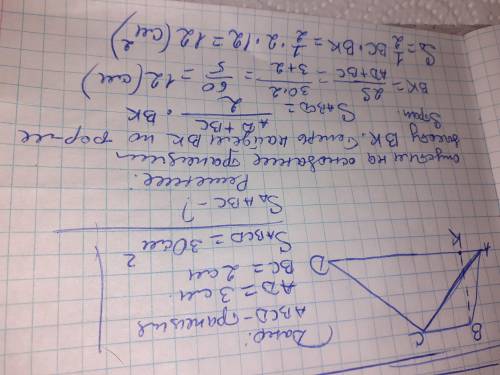 Дано:
ABCD - трапеция
AD = 3 см
BC = 2 см
S ABCD = 30 см²
S ABC - ?
Решение:
опустим на основание трапеции
высоту BK. Теперь найдем BK по фор-ле
S ABCD = (AD + BC)/2 · BK
BK = 2S трап./(AD + BC) = 30·2/(3+2) = 60/5 = 12 (см)
S△ = 1/2 BC · BK = 1/2 · 2 · 12 = 12 (см²)
B
C
A
K
D